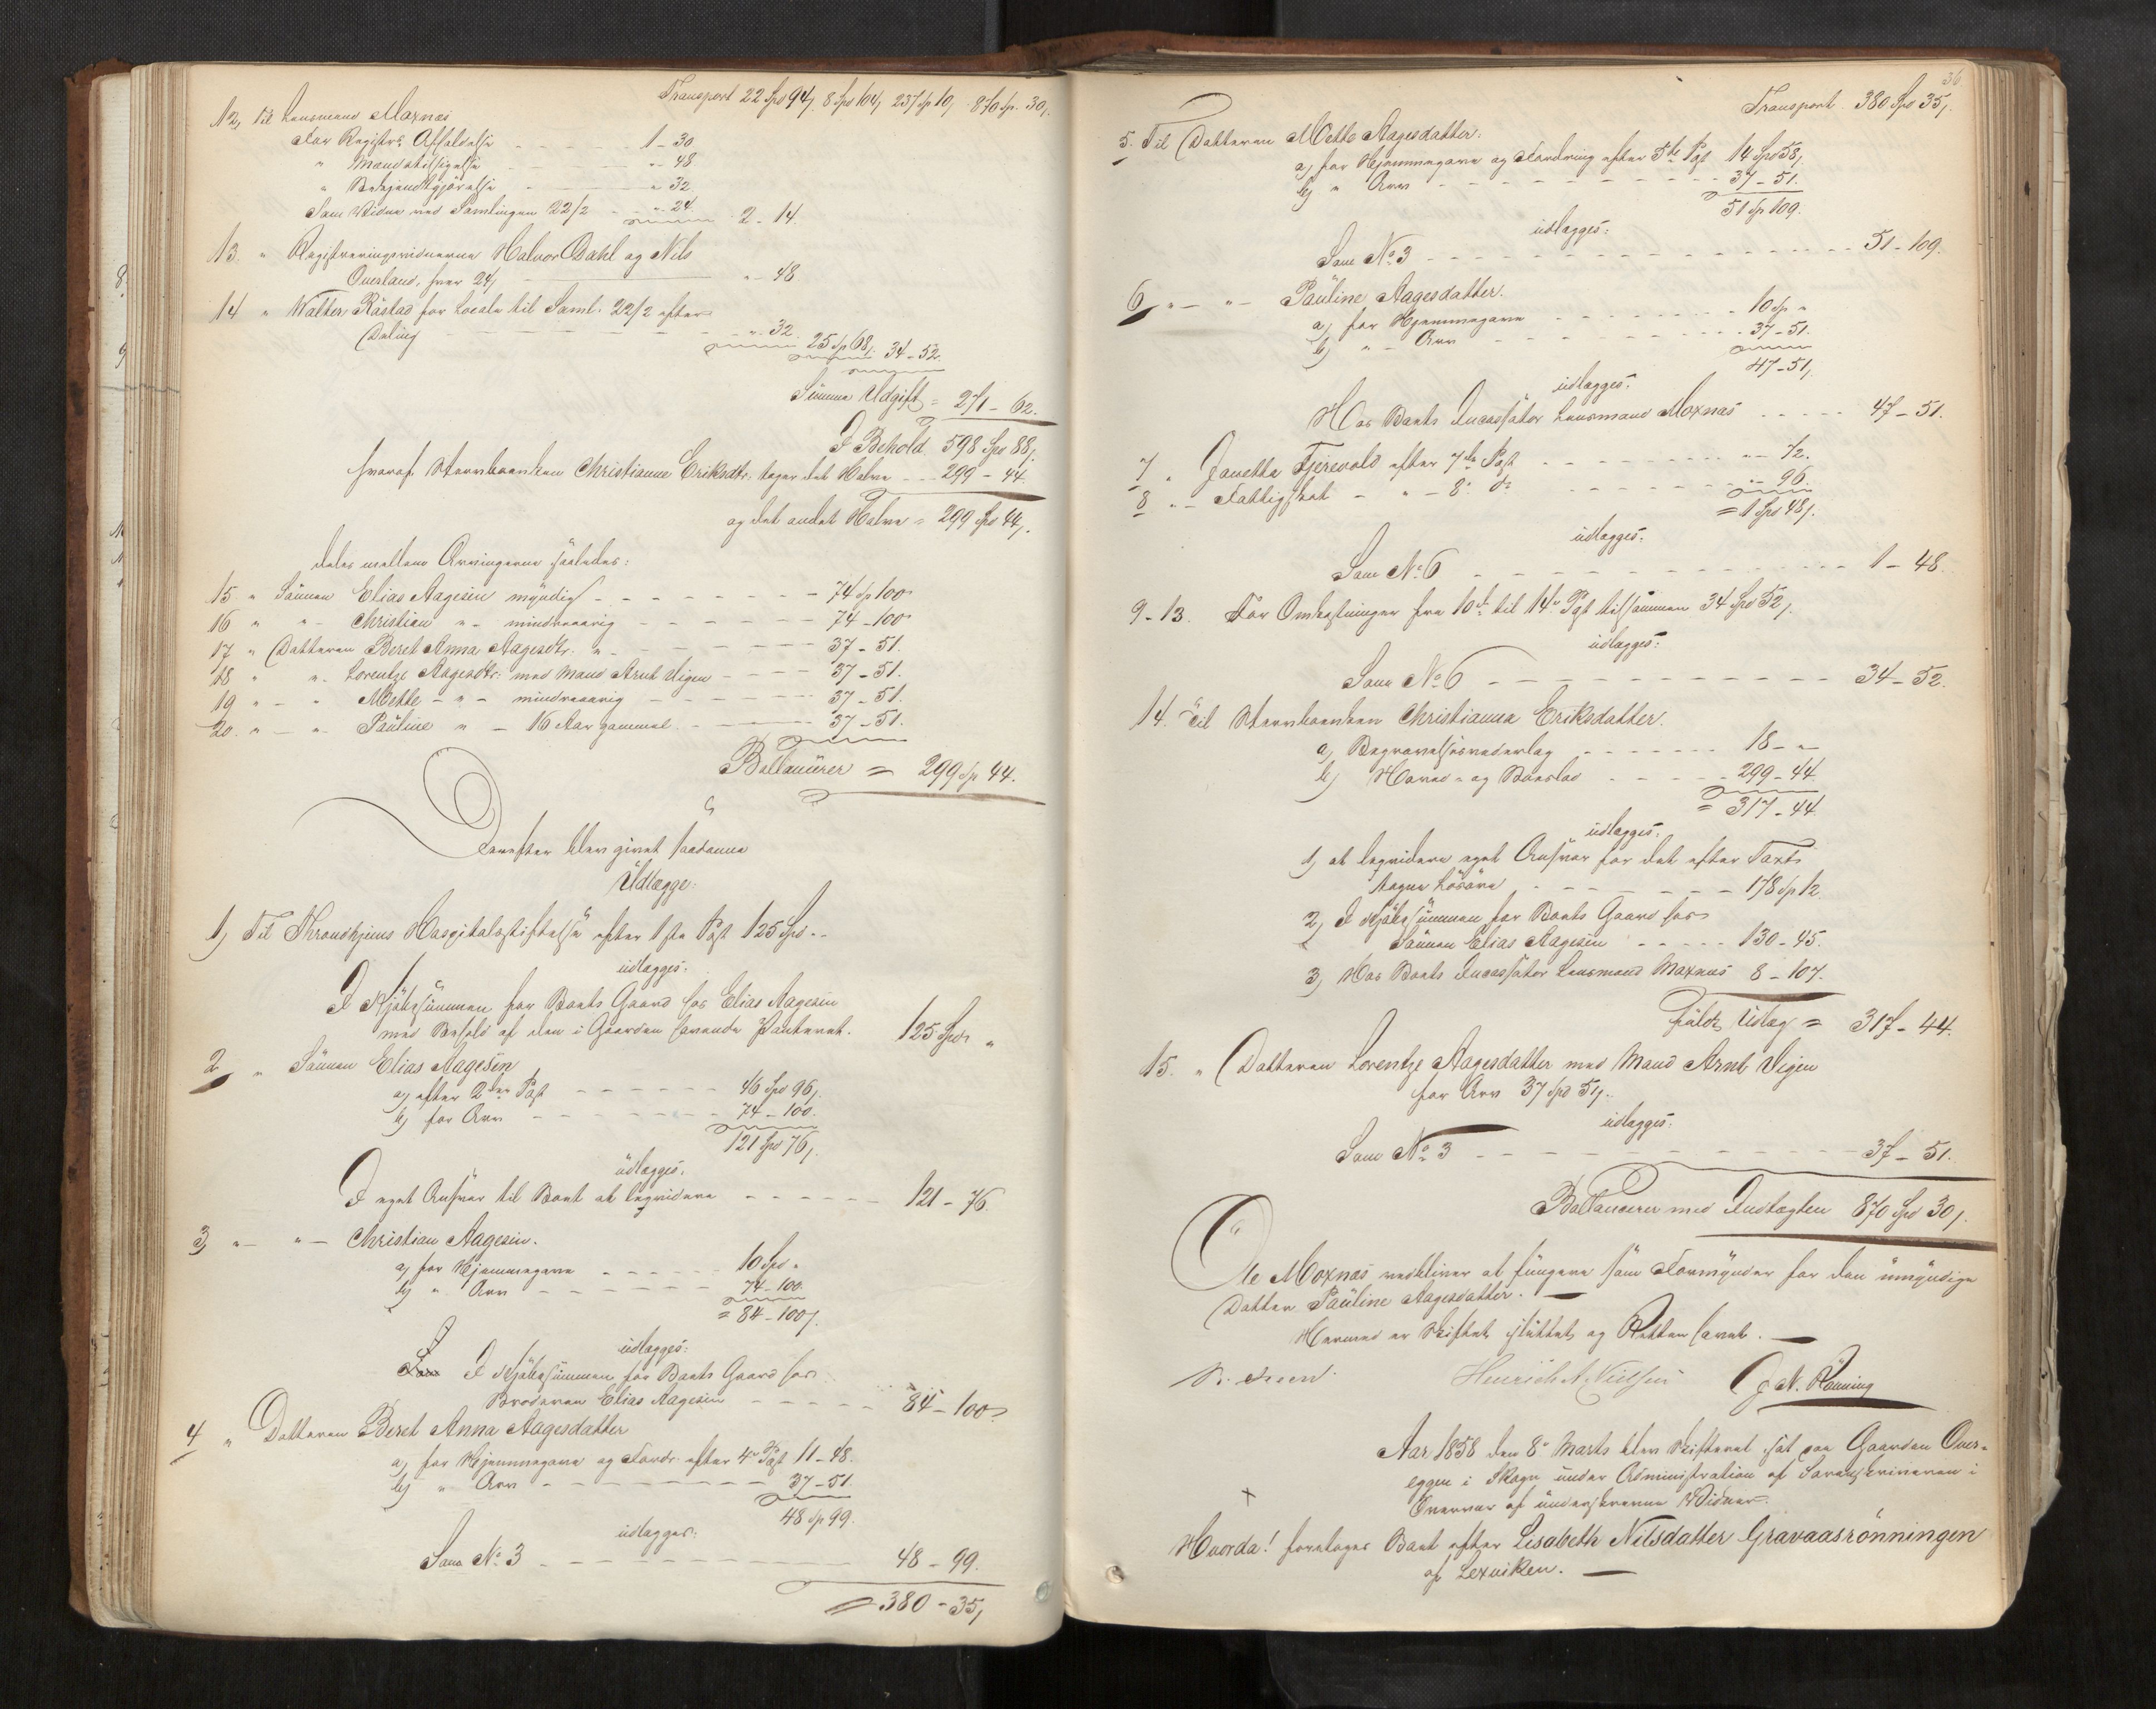 Transport 22 Spd 94/. 8 Spd 104/. 237 Sp 10/. 870 Sp. 30/.
12, til Lensmand Moxnæs
For Registr: Afholdelse - - - 1 - 30
" Mandstilsigelse - - " - 48
" Bekjendtgjørelse - - " 32
Som Vidne ved Samlingen 22/2 - - " - 24. 2 - 14.
13. " Registreringsvidnerne Halvor Dahl og Nils
Overland, hver 24/ " - 48
14 " Walter Råstad for Locale til Saml. 22/2 efter
Deling - - - " - 32 25 Sp 68/. 34 - 52.
Summa Udgift = 271 - 62.
I Behold 598 Spd 88/.
hvoraf Stervboenken Christianna Eriksdtr. tager det Halve - - 299 - 44.
og det andet Halve = 299 Spd 44/.
deles mellem Arvingerne saaledes:
15 " Sönnen Elias Aagesen myndig - - - 74 Sp 100
16 " " - Christian " - mindreaarig - - - 74 - 100
17 " Datteren Beret Anna Aagesdtr. " - - - 37 - 51.
18 " " - Lorentze Aagesdtr. med Mand Arnt Vigen - - - 37 - 51.
19 " - " Mette - " - mindreaarig - - - 37 - 51.
20. " - " - Pauline " - 16 Aar gammel - - - 37 - 51.
Ballancerer = 299 Sp 44.
Derefter blev givet saadanne
Udlægge:
1) Til Throndhjems Hospitalsstiftelse efter 1ste Post 125 Spd - -
udlægges:
I Kjöbesummen for Boets Gaard hos Elias Aagesen
med Behold af den i Gaarden havende Panteret. 125 Spd "
2, " Sönnen Elias Aagesen
a) efter 2den Post - - - 46 Spd 96/.
b) for Arv - - - 74 - 100.
121 Spd 76/.
udlægges:
I eget Ansvar til Boet at leqvidere - - - 121 - 76.
3, " - " - Christian Aagesen.
a) for Hjemmegave - - - 10 Spd "
b) " Arv - - - 74 - 100.
= 84 - 100/.
udlægges:
I Kjöbesummen for Boets Gaard hos
Broderen Elias Aagesen - - - 84 - 100
4 " Datteren Beret Anna Aagesdatter
a) for Hjemmegave og Fordr. efter 4de Post 11 - 48.
b) " Arv - - - 37 - 51
48 Sp 99.
udlægges:
Som No 3 - - - 48 - 99.
= 380 - 35/.
36
Transport 380 Spd 35/.
5. Til Datteren Mette Aagesdatter:
a) for Hjemmegave og Fordring efter 5te Post 14 Spd 58/.
b) " Arv - - - 37 - 51.
51 Sp 109.
udlægges:
Som No 3 - - - 51 - 109.
6, " - " - Pauline Aagesdatter.
a) for Hjemmegave - - - 10 Sp "
b) " - Arv - - - 37 - 51.
47 - 51/.
udlægges:
Hos Boets Incassator Lensmand Moxnæs - - - 47 - 51.
7 " Janetta Fjerevold efter 7de Post - - - " - 72.
8 " - Fattigskat - " - 8de do - - - " - 96.
= 1 Spd 48/.
udlægges:
Som No 6 - - - 1 - 48.
9 - 13. For Omkostninger fra 10de til 14de Post tilsammen 34 Spd 52/.
udlægges:
Som No 6 - - - 34 - 52.
14. Til Stervboenken Christianna Eriksdatter.
a) Begravelsesvederlag - - - 18 - "
b) Hoved- og Boeslod - - - 299 - 44
= 317 - 44
udlægges:
1) at leqvidere eget Ansvar for det efter Taxt
tagne Lösöre - - - 178 Sp 12
2) I Kjöbesummen for Boets Gaard hos
Sönnen Elias Aagesen - - - 130 - 45.
3) Hos Boets Incassator Lensmand Moxnæs 8 - 107.
fuldt Udlæg = 317 - 44.
15. " Datteren Lorentze Aagesdatter med Mand Arnt Vigen
for Arv 37 Spd 51/.
udlægges:
Som No 3 - - - 37 - 51.
Ballancerer med Indtægten 870 Spd 30/.
Ole Moxnæs vedbliver at fungere som Formynder for den umyndige
Datter Pauline Aagesdatter. —
Hermed er Skiftet sluttet og Retten hævet. —
Henrich A Nielsen J N. Rönning
Aar 1858 den 8de Marts blev Skifteret sat paa Gaarden Over-
eggen i Skogn under Administration af Sorenskriveren i
Overvær af underskrevne Vidner.
Hvorda! foretoges Boet efter Lisabeth Nilsdatter Gravaasrönningen
af Lexviken. —